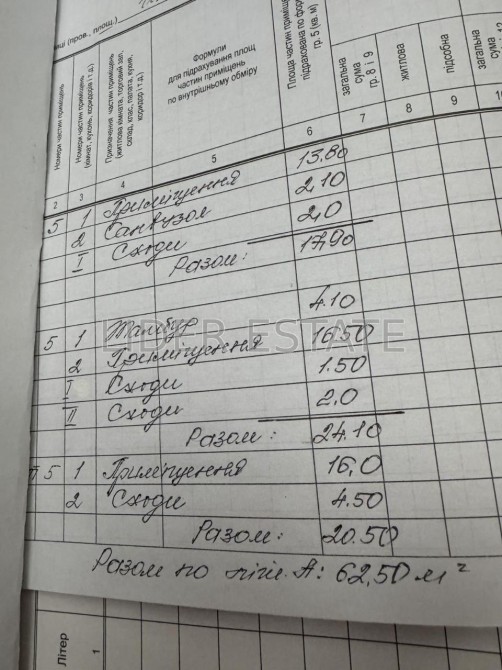 ці (пров., площ.)
Номери частин приміщень
Номери частин приміщень (кімнат, кухонь, коридорів і т.д.)
Призначення частин приміщень (житлова кімната, торговий зал, склад, клас, палата, кухня, коридор і т.д.)
Формули для підрахування площ частин приміщень по внутрішньому обміру
Площа частин приміщень
гр. 5 (кв. м)
загальна сума гр. 8 і 9
житлова
підсобна
загальна сума
2 3 4 5 6 7 8 9
5 1 Приміщення 13,80
2 Санвузол 2,10
I Сходи 2,0
Разом: 17,90
5 1 Тамбур 4.10
2 Приміщення 16.50
I Сходи 1.50
II Сходи 2,0
Разом: 24.10
5 1 Приміщення 16,0
2 Сходи 4.50
Разом: 20.50
Разом по літ. А: 62,50 м²
LIDER ESTATE
Літер
1